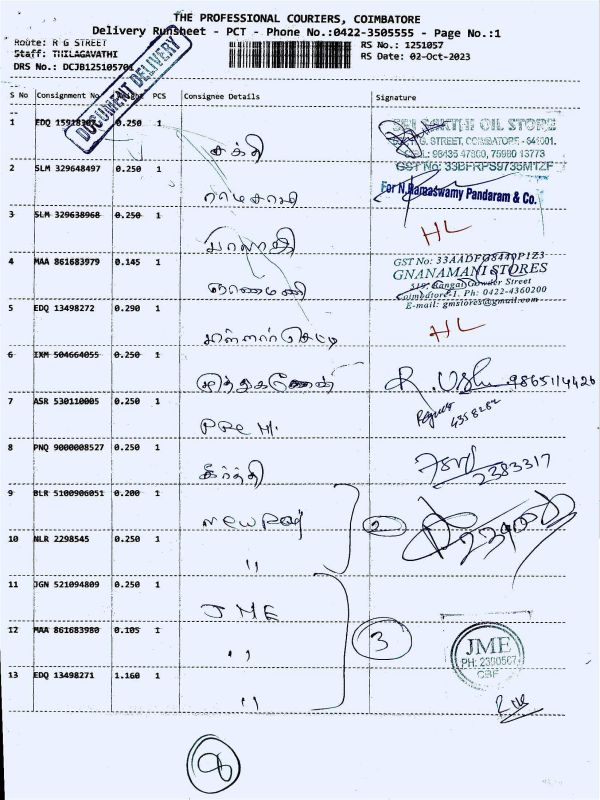 THE PROFESSIONAL COURIERS, COIMBATORE
Delivery Runsheet - PCT - Phone No.:0422-3505555 - Page No.:1
Route: R G STREET
Staff: THILAGAVATHI
DRS No.: DCJB125105701
RS No.: 1251057
RS Date: 02-Oct-2023
DOCUMENT DELIVERY
S No Consignment No PCS Consignee Details Signature
1 EDQ 0.250 1 சக்தி
SRI SAKTHI OIL STORE
STREET, COIMBATORE - 641001.
GST No: 33BFRPS9735M1ZF
2 SLM 329648497 0.250 1 ராமசாமி
For N.Ramaswamy Pandaram & Co.
3 SLM 329638968 0.250 1 பாலாஜி HL
4 MAA 861683979 0.145 1 ஞானமணி
GST No: 33AADFG8440P1Z3
GNANAMANI STORES
519, Rangai Gowder Street
Coimbatore-1. Ph: 0422-4360200
E-mail: gmstores@gmail.com
5 EDQ 13498272 0.290 1 HL
6 IXM 504664055 0.250 1 R. Usha 9865114426
7 ASR 530110005 0.250 1 4358262
8 PNQ 9000008527 0.250 1 கீர்த்தி 2383317
9 BLR 5100906051 0.200 1 New Raj 2
10 NLR 2298545 0.250 1 "
11 JGN 521094809 0.250 1 JME
12 MAA 861683980 0.105 1 " 3
13 EDQ 13498271 1.160 1 "
JME
PH: 2390567
CBE